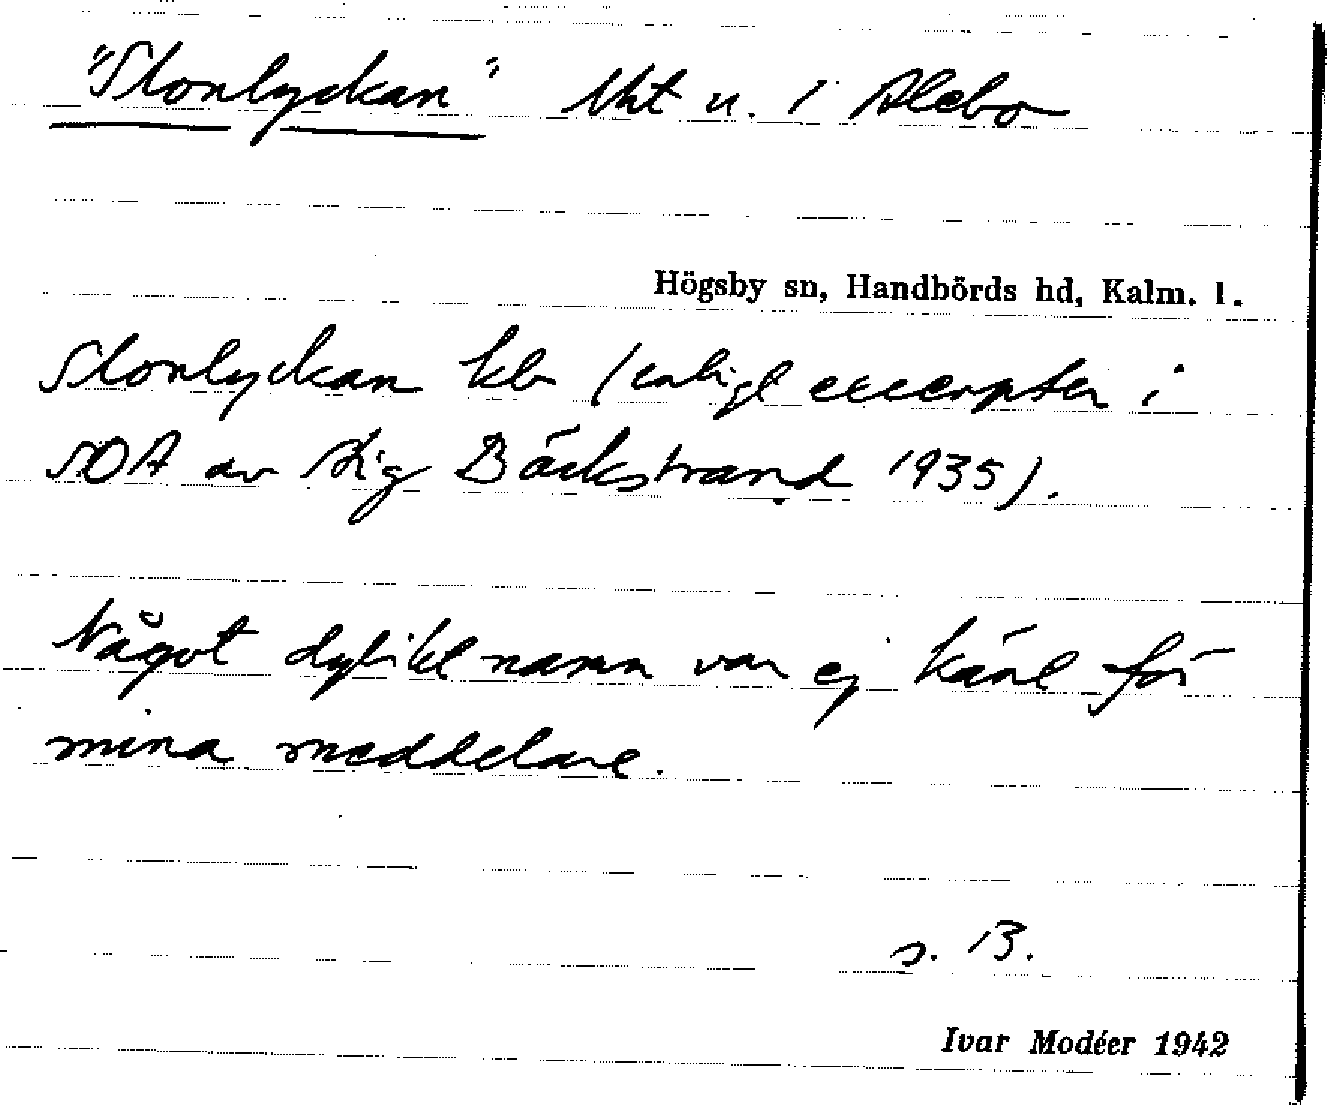 "Slonlyckan" Uht u. 1 Alebo
Högsby sn, Handbörds hd, Kalm. l.
Slonlyckan (enligt excerpter i
SOA av Stig Bäckstrand 1935).
Något dylikt namn var ej känt för
mina meddelare.
s. 13.
Ivar Modéer 1942